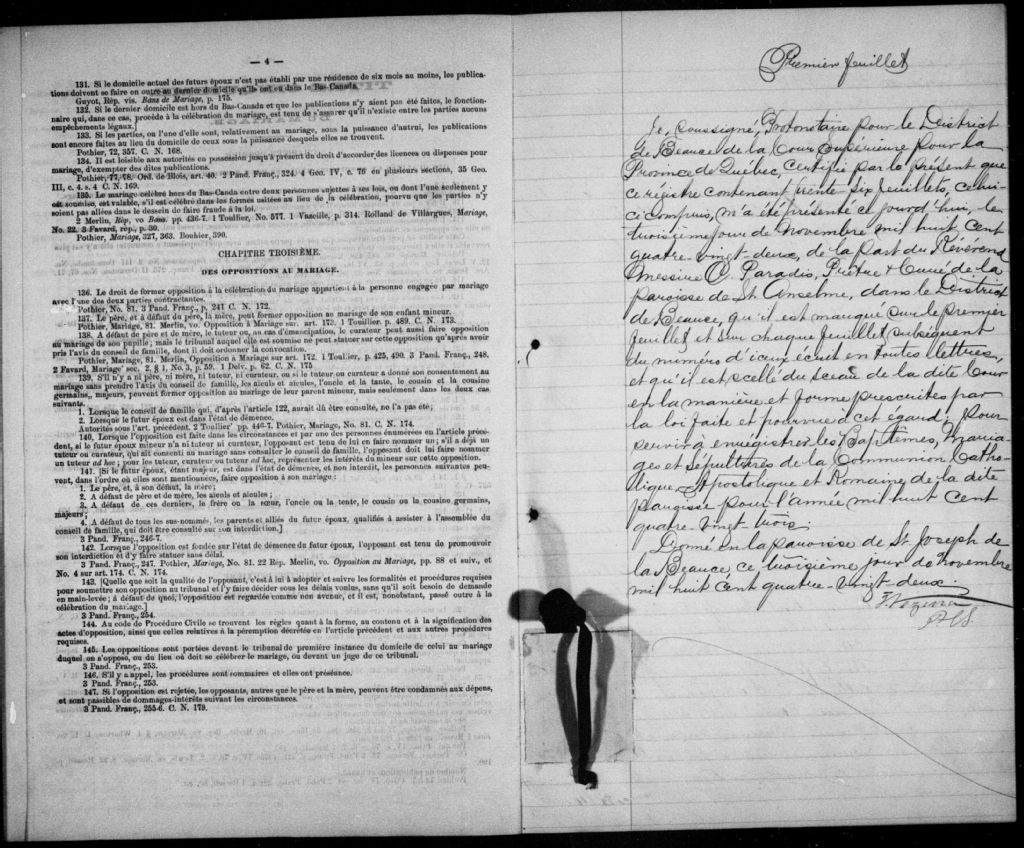 — 4 —
131. Si le domicile actuel des futurs époux n'est pas établi par une résidence de six mois au moins, les publica-
tions doivent se faire en outre au dernier domicile qu'ils ont eu dans le Bas-Canada.
Guyot, Rép. vis. Bans de Mariage, p. 175.
132. Si le dernier domicile est hors du Bas-Canada et que les publications n'y aient pas été faites, le fonction-
naire qui, dans ce cas, procède à la célébration du mariage, est tenu de s'assurer qu'il n'existe entre les parties aucuns
empêchements légaux.]
133. Si les parties, ou l'une d'elle sont, relativement au mariage, sous la puissance d'autrui, les publications
sont encore faites au lieu du domicile de ceux sous la puissance desquels elles se trouvent.
Pothier, 72, 357. C. N. 168.
134. Il est loisible aux autorités en possession jusqu'à présent du droit d'accorder des licences ou dispenses pour
mariage, d'exempter des dites publications.
Pothier, 77, 78. Ord. de Blois, art. 40. 2 Pand. Franç., 324. 4 Geo. IV, c. 76 en plusieurs sections, 35 Geo.
III, c. 4. s. 4 C. N. 169.
135. Le mariage célébré hors du Bas-Canada entre deux personnes sujettes à ses lois, ou dont l'une seulement y
est soumise, est valable, s'il est célébré dans les formes usitées au lieu de la célébration, pourvu que les parties n'y
soient pas allées dans le dessein de faire fraude à la loi.
2 Merlin, Rép, vo Bans. pp. 466-7. 1 Toullier, No. 577. 1 Vazeille, p. 314. Rolland de Villargues, Mariage,
No. 22. 3 Favard, rép., p. 30.
Pothier, Mariage, 327, 363. Bouhier, 390.
CHAPITRE TROISIÈME.
DES OPPOSITIONS AU MARIAGE.
136. Le droit de former opposition à la célébration du mariage appartient à la personne engagée par mariage
avec l'une des deux parties contractantes.
Pothier, No. 81. 3 Pand. Franç., p. 241 C. N. 172.
137. Le père, et à défaut du père, la mère, peut former opposition au mariage de son enfant mineur.
Pothier, Mariage, 81. Merlin, vo. Opposition à Mariage sur. art. 173. 1 Touillier. p. 489. C. N. 173.
138. A défaut de père et de mère, le tuteur ou, au cas d'émancipation, le curateur peut aussi faire opposition
au mariage de son pupille; mais le tribunal auquel elle est soumise ne peut statuer sur cette opposition qu'après avoir
pris l'avis du conseil de famille, dont il doit ordonner la convocation.
Pothier, Mariage, 81. Merlin, Opposition à Mariage sur art. 172. 1 Toulier, p. 425, 490. 3 Pand. Franç., 248.
2 Favard, Mariage sec. 2. § 1, No. 3, p. 59. 1 Delv. p. 62. C. N. 175
139. S'il n'y a ni père, ni mère, ni tuteur, ni curateur, ou si le tuteur ou curateur a donné son consentement au
mariage sans prendre l'avis du conseil de famille, les aieuls et aieules, l'oncle et la tante, le cousin et la cousine
germains, majeurs, peuvent former opposition au mariage de leur parent mineur, mais seulement dans les deux cas
suivants.
1. Lorsque le conseil de famille qui, d'après l'article 122, aurait dû être consulté, ne l'a pas été;
2. Lorsque le futur époux est dans l'état de démence.
Autorités sous l'art. précédent. 2 Toullier pp. 446-7. Pothier, Mariage, No. 81. C. N. 174.
140. Lorsque l'opposition est faite dans les circonstances et par une des personnes énumérées en l'article précé-
dent, si le futur époux mineur n'a ni tuteur ni curateur, l'opposant est tenu de lui en faire nommer un; s'il a déjà un
tuteur ou curateur, qui ait consenti au mariage sans consulter le conseil de famille, l'opposant doit lui faire nommer
un tuteur ad hoc; pour les tuteur, curateur ou tuteur ad hoc, représenter les intérêts du mineur sur cette opposition.
141. [Si le futur époux, étant majeur, est dans l'état de démence, et non interdit, les personnes suivantes peu-
vent, dans l'ordre où elles sont mentionnées, faire opposition à son mariage:
1. Le père, et, à son défaut, la mère;
2. A défaut de père et de mère, les aieuls et aieules;
3. A défaut de ces derniers, le frère ou la sœur, l'oncle ou la tente, le cousin ou la cousine germains,
majeurs;
4. A défaut de tous les sus-nommés, les parents et alliés du futur époux, qualifiés à assister à l'assemblée du
conseil de famille, qui doit être consulté sur son interdiction.]
3 Pand. Franç., 246-7.
142. Lorsque l'opposition est fondée sur l'état de démence du futur époux, l'opposant est tenu de promouvoir
son interdiction et d'y faire statuer sans délai.
3 Pand. Franç., 247. Pothier, Mariage, No. 81. 22 Rép. Merlin, vo. Opposition au Mariage, pp. 88 et suiv., et
No. 4 sur art. 174. C. N. 174.
143. [Quelle que soit la qualité de l'opposant, c'est à lui à adopter et suivre les formalités et procédures requises
pour soumettre son opposition au tribunal et l'y faire décider sous les délais voulus, sans qu'il soit besoin de demande
en main-levée; à défaut de quoi, l'opposition est regardée comme non avenue, et il est, nonobstant, passé outre à la
célébration du mariage.]
3 Pand. Franç., 254.
144. Au code de Procédure Civile se trouvent les règles quant à la forme, au contenu et à la signification des
actes d'opposition, ainsi que celles relatives à la péremption décrétée en l'article précédent et aux autres procédures
requises.
145. Les oppositions sont portées devant le tribunal de première instance du domicile de celui au mariage
duquel on s'oppose, ou du lieu où doit se célébrer le mariage, ou devant un juge de ce tribunal.
3 Pand. Franç., 253.
146. S'il y a appel, les procédures sont sommaires et elles ont préséance.
3 Pand. Franç., 253.
147. Si l'opposition est rejetée, les opposants, autres que le père et la mère, peuvent être condamnés aux dépens,
et sont passibles de dommages-intérêts suivant les circonstances.
3 Pand. Franç., 255-6. C. N. 179.
Premier feuillet
Je, soussigné, Protonotaire pour le District
de Beauce de la Cour Supérieure pour la
Province de Québec, certifie par le présent que
ce régistre contenant trente-six feuillets, celui-
ci compris, m'a été présenté ce jourd'hui, le
troisième jour de novembre mil huit cent
quatre-vingt-deux, de la part du Révérend
Messire O. Paradis, Prêtre & Curé de la
paroisse de St. Anselme, dans le District
de Beauce, qu'il est marqué sur le premier
feuillet et sur chaque feuillet subséquent
du numéro d'iceux écrit en toutes lettres,
et qu'il est scellé du sceau de la dite Cour
en la manière et forme prescrites par
la loi faite et pourvue à cet égard, pour
servir à enrégistrer les Baptêmes, Maria-
ges et Sépultures de la Communion Catho-
lique, Apostolique et Romaine de la dite
paroisse pour l'année mil huit cent
quatre-vingt-trois.
Donné en la paroisse de St Joseph de
la Beauce ce troisième jour de novembre
mil huit cent quatre-vingt-deux.
Vezina
P.C.S.